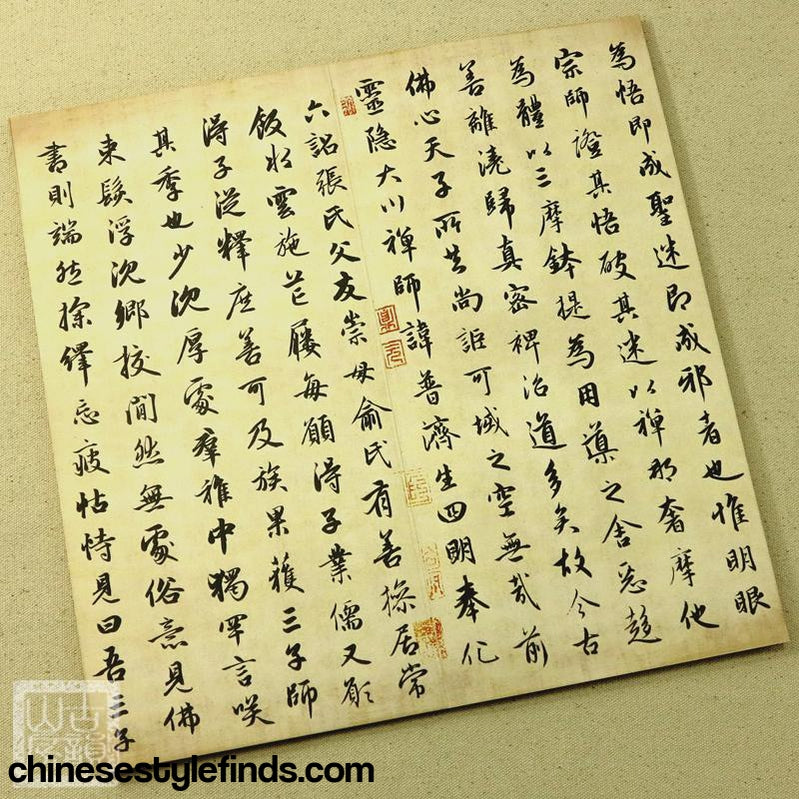 為悟即成聖迷即成邪者也惟明眼
宗師證其悟破其迷以禪那奢摩他
為體以三摩鉢提為用導之舍惡趍
善離澆歸真密裨治道多矣故今古
佛心天子所共尚詎可域之空無哉前
靈隐大川禅師諱普濟生四明奉化
六詔張氏父友崇母俞氏有善操居常
飯水雲施芒屨每願得子業儒又願
得子從釋庶善可及族果獲三子師
其季也少沉厚處羣稚中獨罕言咲
束髮浮沉鄉挍間然無處俗意見佛
書則端然探繹忘疲怙恃見曰吾三子
chinesestylefinds.com